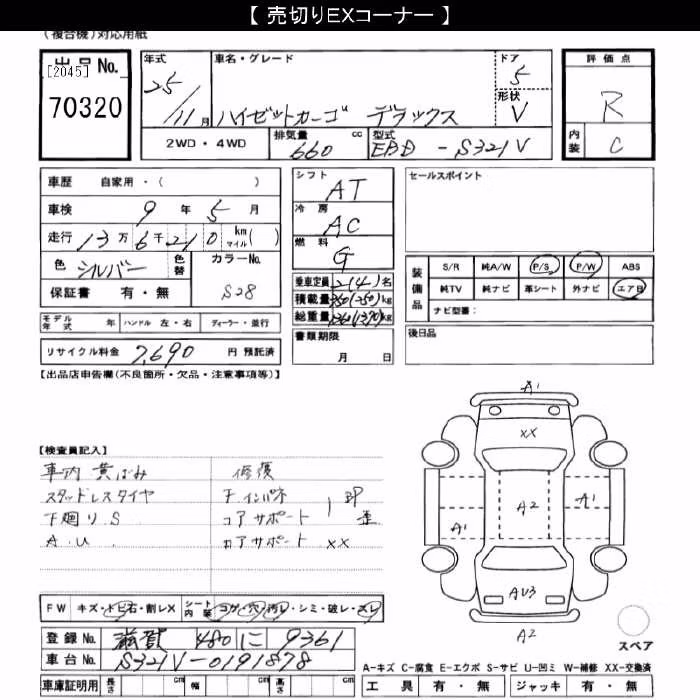 【 売切りEXコーナー 】
(複合機)対応用紙
出品No.
[2045]
70320
年式
25/11月
車名・グレード
ハイゼットカーゴ デラックス
ドア
5
形状
V
評価点
R
内装
C
2WD・4WD
排気量
660 cc
型式
EBD-S321V
車歴 自家用・( )
車検 9年5月
走行 13万6千210 km マイル( )
色 シルバー
色替
カラーNo.
S28
保証書 有・無
モデル年式 年 ハンドル 左・右 ディーラー・並行
リサイクル料金 7,690 円 預託済
シフト
AT
冷房
AC
燃料
G
乗車定員 2(4)名
積載量 350(250)kg
総重量 kg
書類期限
月 日
セールスポイント
装備品
S/R 純A/W P/S P/W ABS
純TV 純ナビ 革シート 外ナビ エアB
ナビ型番:
後日品
【出品店申告欄(不良箇所・欠品・注意事項等)】
【検査員記入】
車内 黄ばみ
スタッドレスタイヤ
下廻りS
A.U.
修復
F インパネ
コアサポート
コアサポート XX
A1
XX
A2
A1
A1
AU3
A2
スペア
FW キズ・トビ石・割レX
シート内装 コゲ・穴・汚レ・シミ・破レ・スレ
登録No. 滋賀 480 に 9361
車台No. S321V-0191878
車庫証明用 長さ cm 幅 cm 高さ cm
A-キズ C-腐食 E-エクボ S-サビ U-凹ミ W-補修 XX-交換済
工具 有・無 ジャッキ 有・無